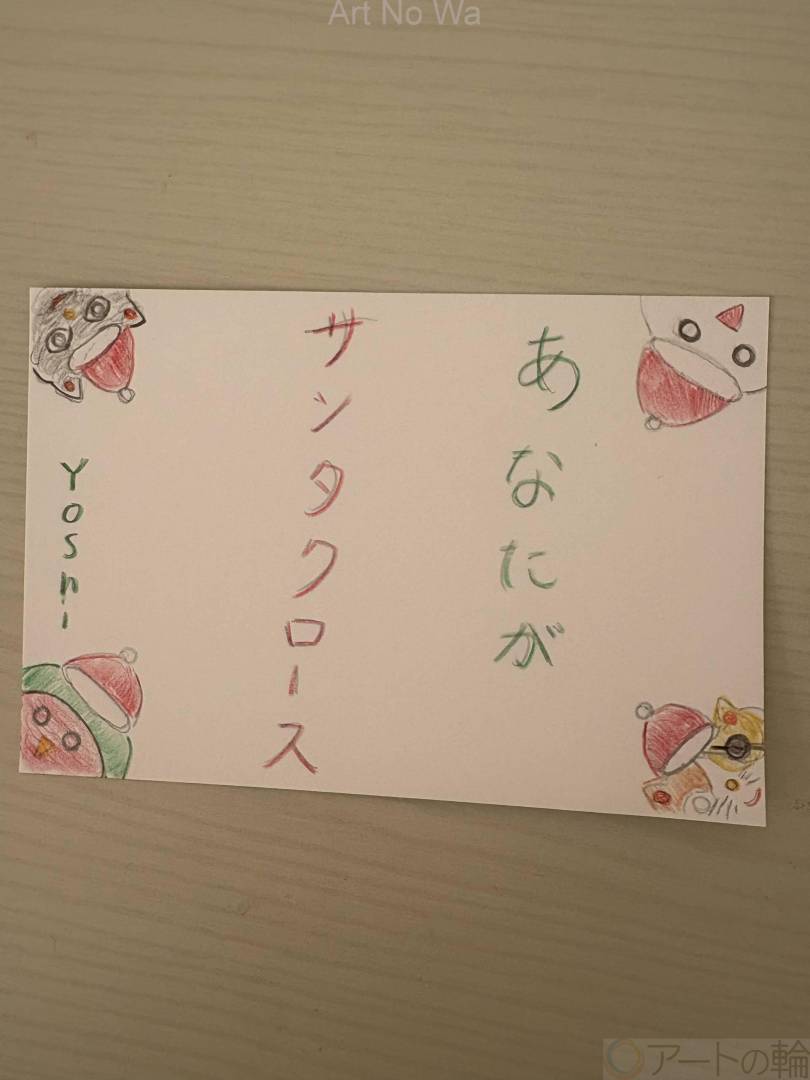 Art No Wa
あなたが
サンタクロース
Yoshi
アートの輪